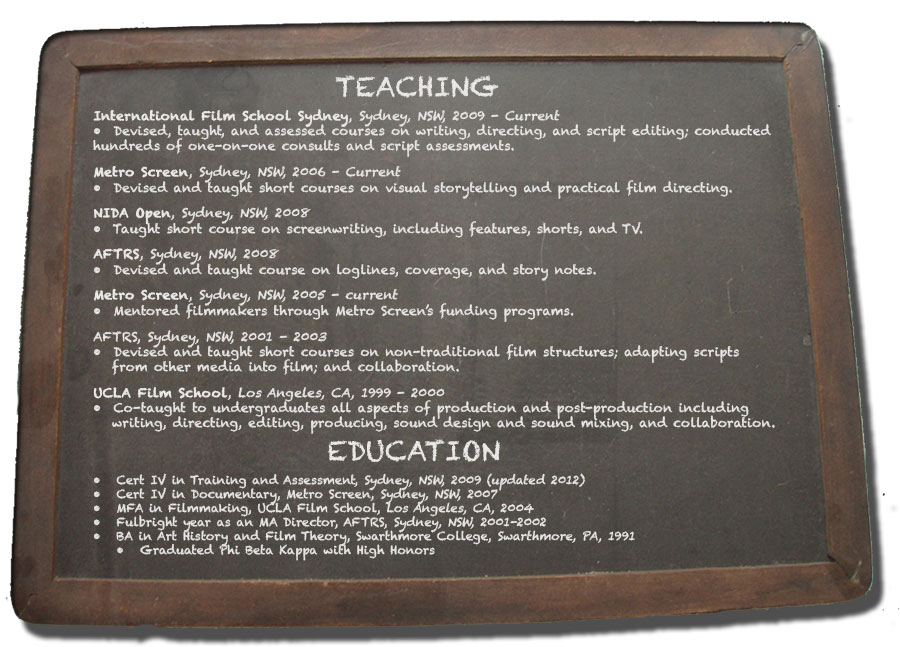 TEACHING
International Film School Sydney, Sydney, NSW, 2009 – Current
• Devised, taught, and assessed courses on writing, directing, and script editing; conducted
hundreds of one-on-one consults and script assessments.
Metro Screen, Sydney, NSW, 2006 – Current
• Devised and taught short courses on visual storytelling and practical film directing.
NIDA Open, Sydney, NSW, 2008
• Taught short course on screenwriting, including features, shorts, and TV.
AFTRS, Sydney, NSW, 2008
• Devised and taught course on loglines, coverage, and story notes.
Metro Screen, Sydney, NSW, 2005 – current
• Mentored filmmakers through Metro Screen's funding programs.
AFTRS, Sydney, NSW, 2001 – 2003
• Devised and taught short courses on non-traditional film structures; adapting scripts
from other media into film; and collaboration.
UCLA Film School, Los Angeles, CA, 1999 – 2000
• Co-taught to undergraduates all aspects of production and post-production including
writing, directing, editing, producing, sound design and sound mixing, and collaboration.
EDUCATION
• Cert IV in Training and Assessment, Sydney, NSW, 2009 (updated 2012)
• Cert IV in Documentary, Metro Screen, Sydney, NSW, 2007
• MFA in Filmmaking, UCLA Film School, Los Angeles, CA, 2004
• Fulbright year as an MA Director, AFTRS, Sydney, NSW, 2001-2002
• BA in Art History and Film Theory, Swarthmore College, Swarthmore, PA, 1991
• Graduated Phi Beta Kappa with High Honors